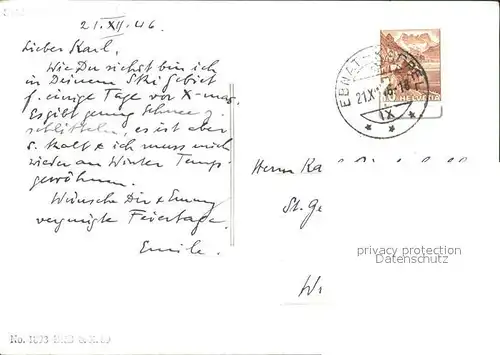 21.XII.46.
Lieber Karl,
Wie Du siehst bin ich
in Deinem Ski Gebiet
f. einige Tage vor X-mas.
Es gibt genug Schnee z.
schlitteln, es ist aber
s. kalt & ich muss mich
wieder an Winter Temp.
gewöhnen.
Wünsche Dir &
vergnügte Feiertage.
Emile.
EBNAT
21.X
IX
HELVETIA
Herrn Ka
St. Ge
privacy protection
DATENSCHUTZ
Wi